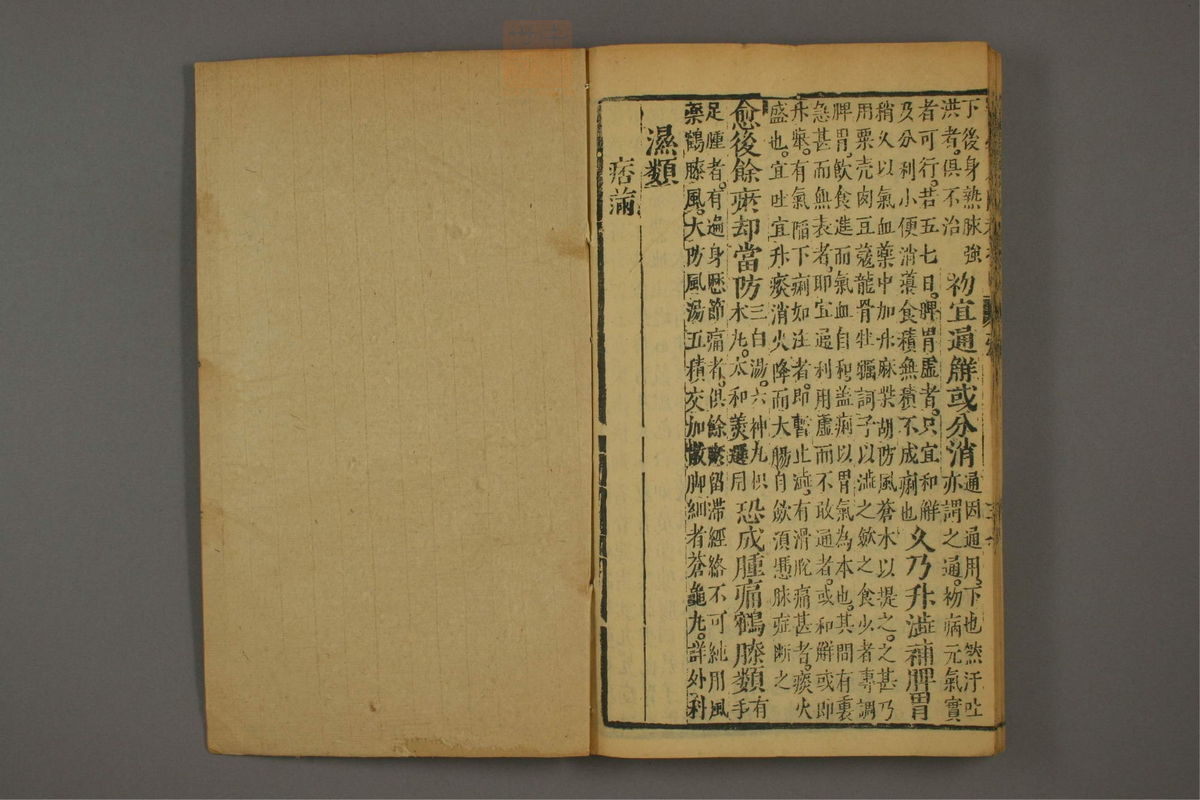 下後身熱脉強
洪者。俱不治
初宜通解或分消
通因通用。下也然汗吐
亦謂之通。初病元氣實
者可行。若五七日。脾胃虛者。只宜和解
及分利小便消蕩食積無積不成痢也
久乃升澁補脾胃
稍久以氣血藥中加升麻柴胡防風蒼朮以提之。之甚乃
用粟壳肉豆蔻龍骨牡礪訶子以澁之歛之食少者專調
脾胃。飲食進而氣血自和。盖痢以胃氣為本也。其間有裏
急甚而無表者。即宜通利用虛而不敢通者。或和解或即
升舉。有氣陷下痢如注者。即暫止澁。有滑脫痛甚者。痰火
盛也。宜吐宜升痰消火降而大腸自歛須慿脉症断之
愈後餘瘀却當防
三白湯。六神丸
木丸。太和羮選用
恐成腫痛鶴膝類
有
手
足腫者。有遍身歷節痛者。俱餘瘀留滯經絡不可純用風
藥鶴膝風。大防風湯五積交加散脚細者蒼龜丸。詳外科
濕類
痞滿